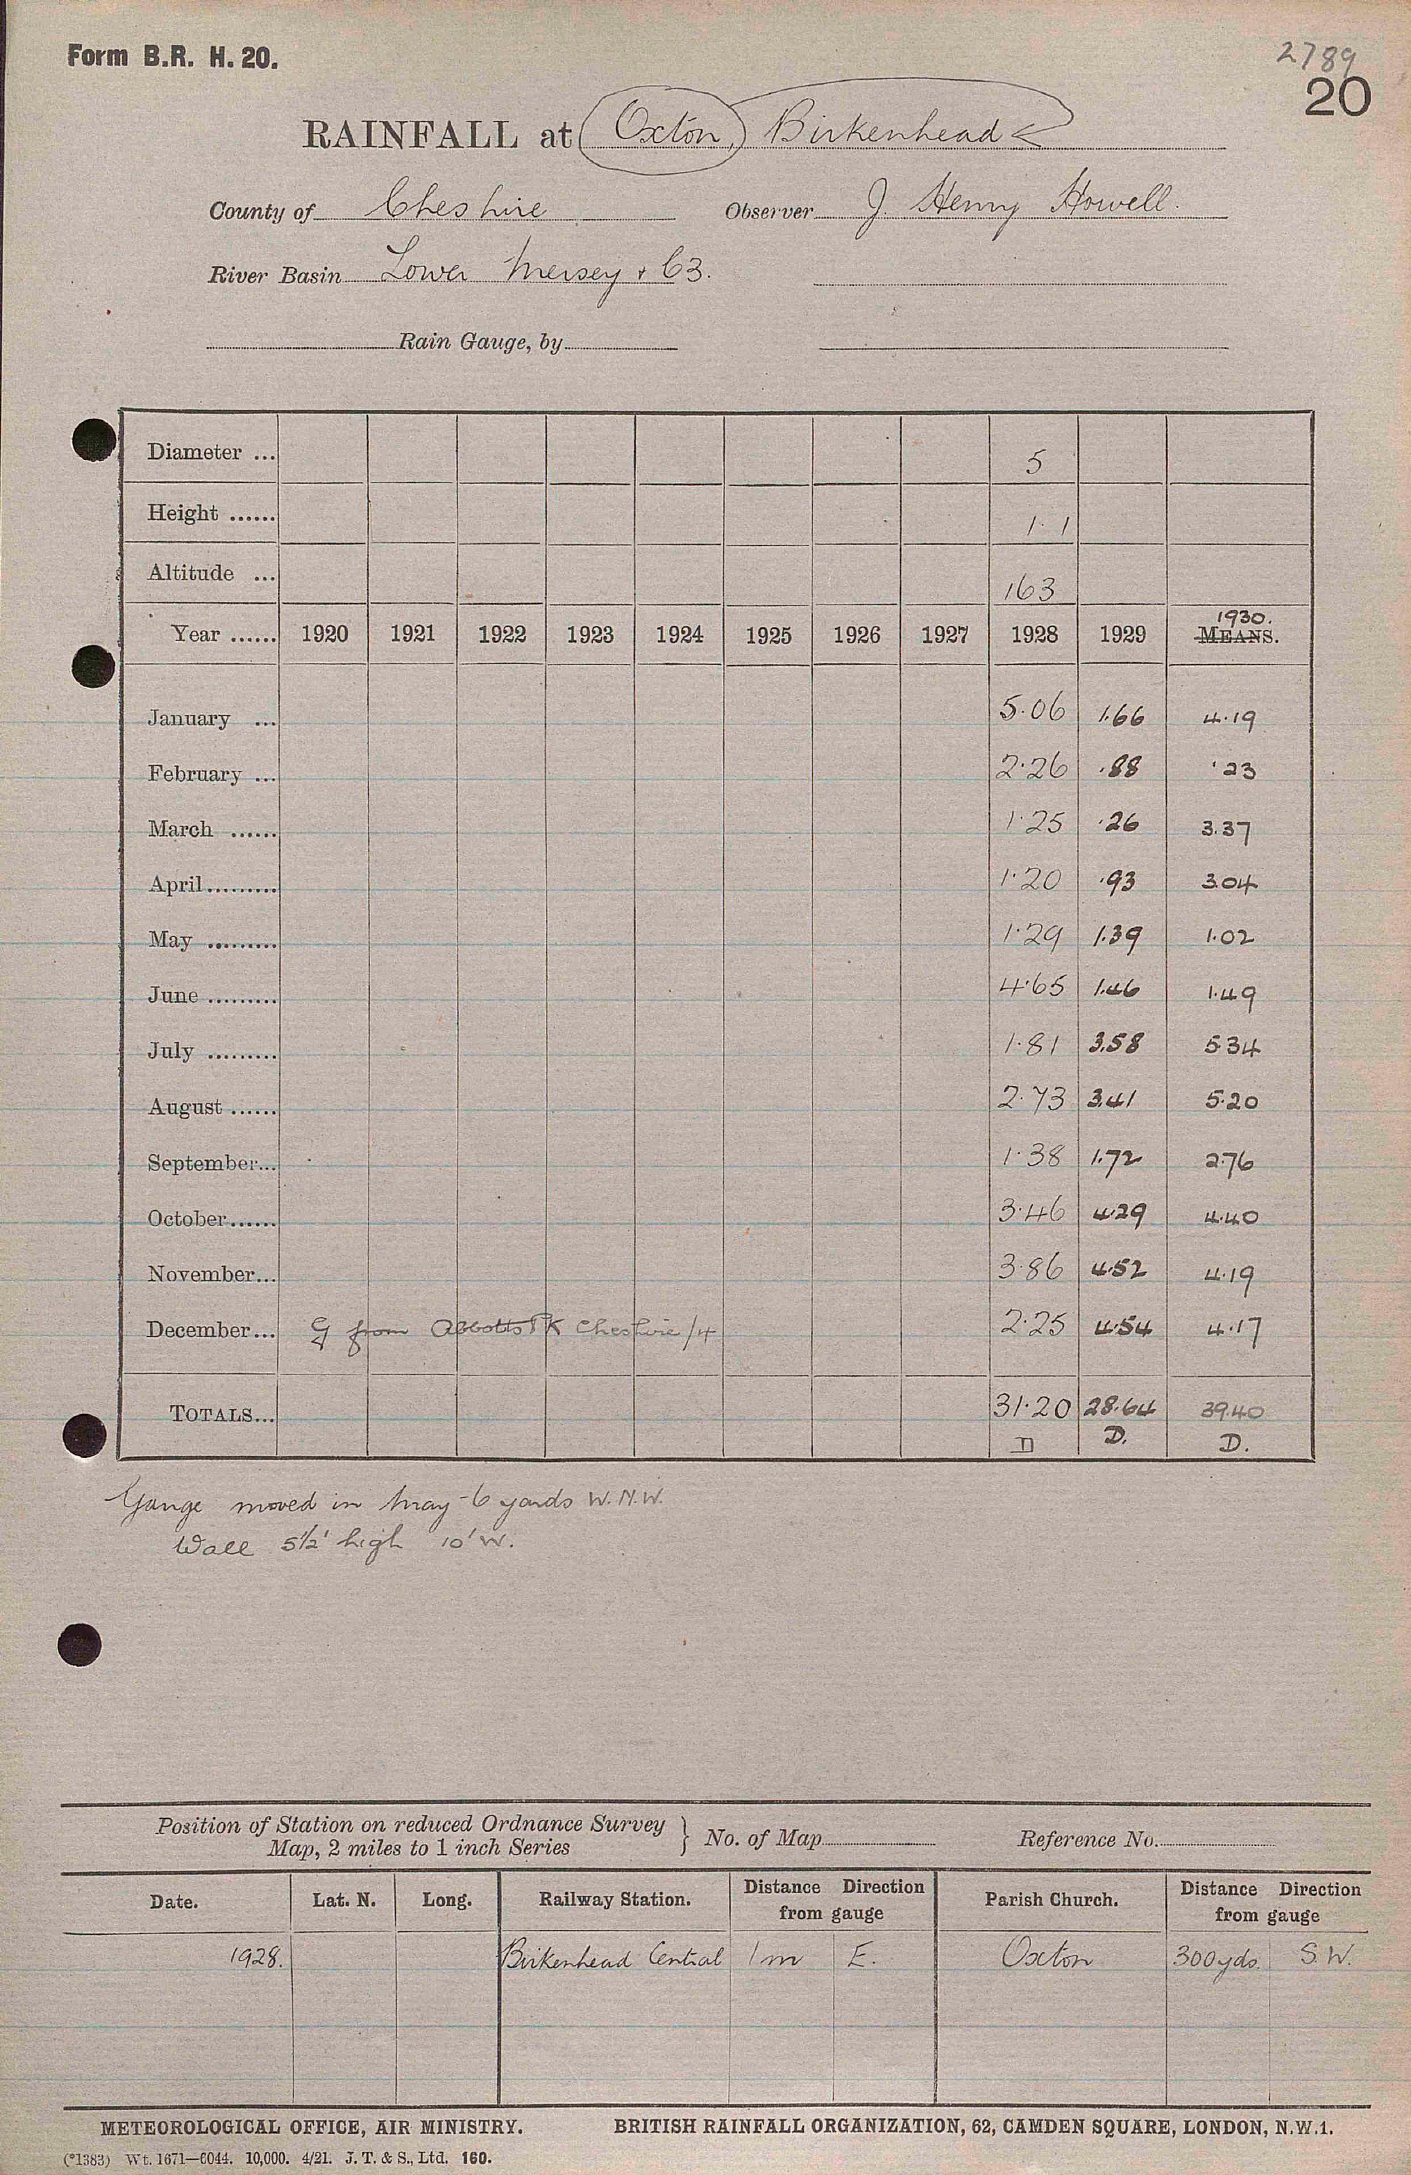 Form B.R. H. 20.
2789
20
RAINFALL at Oxton, Birkenhead
County of Cheshire Observer J. Henry Howell.
River Basin Lower Mersey + C3.
Rain Gauge, by
Diameter ... 5
Height ...... 1· 1
Altitude ... 163
1930.
Year ...... 1920 1921 1922 1923 1924 1925 1926 1927 1928 1929 MEANS.
January ... 5·06 1.66 4·19
February ... 2·26 .88 ·23
March ...... 1·25 ·26 3.37
April ......... 1·20 ·93 3.04
May ......... 1·29 1.39 1·02
June ......... 4·65 1.46 1·49
July ......... 1·81 3.58 5·34
August ...... 2·73 3.41 5·20
September... 1·38 1.72 2·76
October...... 3·46 4·29 4·40
November... 3·86 4·52 4·19
December... G from Abbotts Pk Cheshire/4 2·25 4·54 4·17
TOTALS... 31·20 28.64 39.40
D D. D.
Gauge moved in May - 6 yards W.N.W.
Wall 5½' high 10' W.
Position of Station on reduced Ordnance Survey
Map, 2 miles to 1 inch Series } No. of Map Reference No.
Date. Lat. N. Long. Railway Station. Distance Direction from gauge Parish Church. Distance Direction from gauge
1928. Birkenhead Central 1 m E. Oxton 300 yds. S.W.
METEOROLOGICAL OFFICE, AIR MINISTRY. BRITISH RAINFALL ORGANIZATION, 62, CAMDEN SQUARE, LONDON, N.W.1.
(*1383) Wt. 1671—6044. 10,000. 4/21. J. T. & S., Ltd. 160.